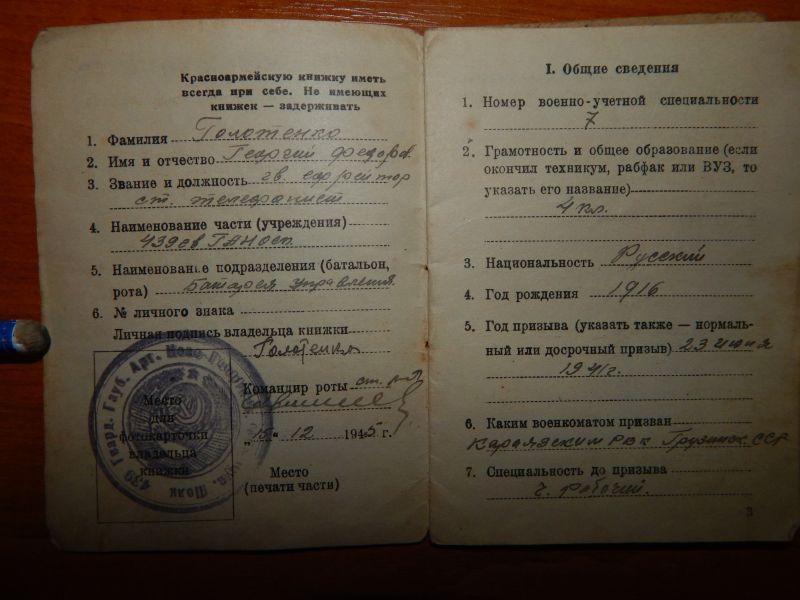 Красноармейскую книжку иметь
всегда при себе. Не имеющих
книжек — задерживать
1. Фамилия Голотенко
2. Имя и отчество Георгий Федоров.
3. Звание и должность гв. ефрейтор
ст. телефонист
4. Наименование части (учреждения)
439 гв
5. Наименование подразделения (батальон,
рота) батарея управления
6. № личного знака
Личная подпись владельца книжки
Голотенко
Командир роты ст.
„15“ 12 1945 г.
Место
(печати части)
Место
для
фотокарточки
владельца
книжки
439 Гвард. Гауб. Арт. Полк
I. Общие сведения
1. Номер военно-учетной специальности
7
2. Грамотность и общее образование (если
окончил техникум, рабфак или ВУЗ, то
указать его название)
4 кл.
3. Национальность Русский
4. Год рождения 1916
5. Год призыва (указать также — нормаль-
ный или досрочный призыв) 23 июня
1941 г.
6. Каким военкоматом призван
РВК Грузинск. ССР
7. Специальность до призыва
рабочий.
3